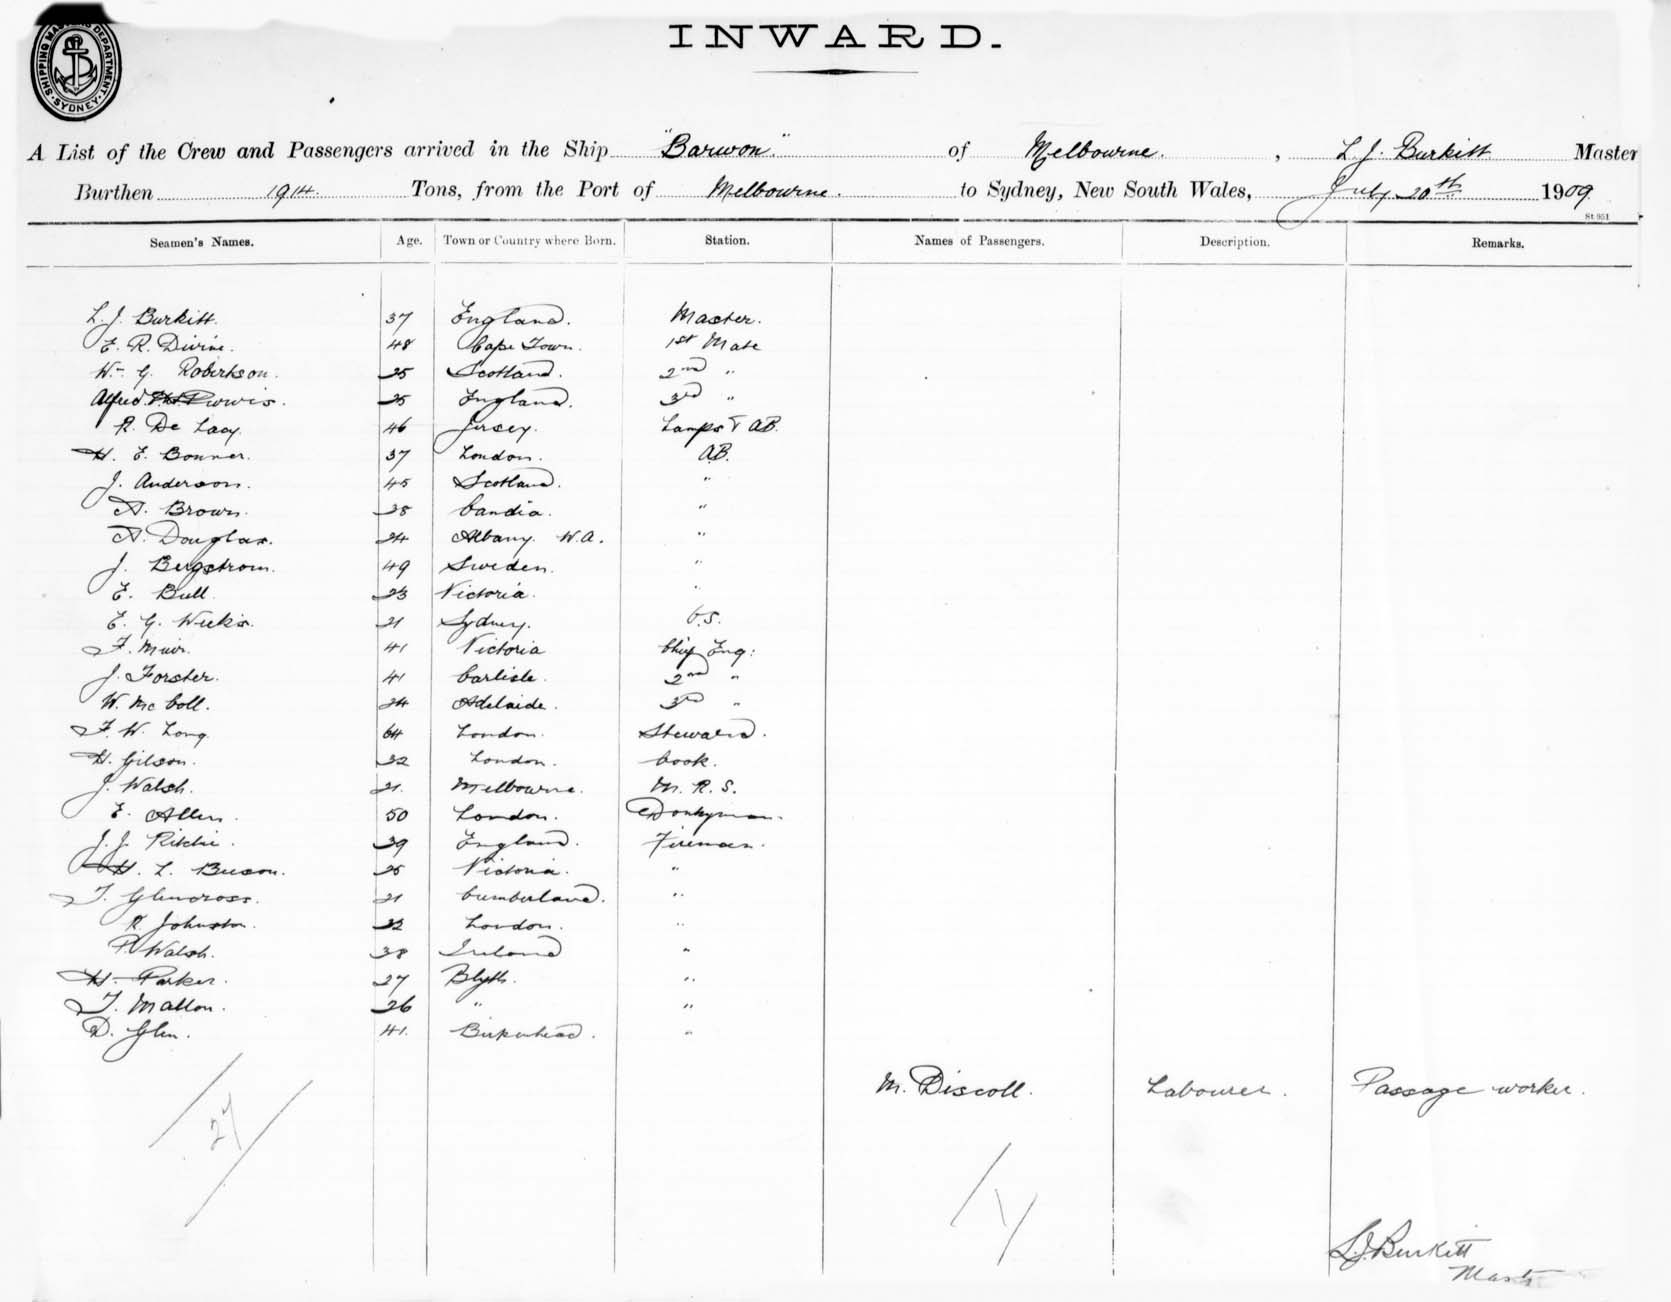 SHIPPING MA DEPARTMENT SYDNEY
INWARD.
A List of the Crew and Passengers arrived in the Ship "Barwon" of Melbourne. , L. J. Burkitt Master
Burthen 1914 Tons, from the Port of Melbourne. to Sydney, New South Wales, July 20th 1909
St 951
Seamen's Names. Age. Town or Country where Born. Station. Names of Passengers. Description. Remarks.
L. J. Burkitt. 37 England. Master.
E. R. Divine. 48 Cape Town. 1st Mate
Wm G. Robertson. 25 Scotland. 2nd "
Alfred Purvis. 25 England. 3rd "
R. De Lacy. 46 Jersey. Lamps & AB.
H. E. Bonner. 37 London. AB.
J. Anderson. 45 Scotland. "
A. Brown. 28 Candia. "
A. Douglas. 24 Albany W.A. "
J. Bergstrom. 49 Sweden. "
E. Bull. 23 Victoria. "
E. G. Weeks. 21 Sydney. O.S.
F. Muir. 41 Victoria Chief Eng:
J. Forster. 41 Carlisle. 2nd "
W. McColl. 24 Adelaide. 3rd "
F. W. Long. 64 London. Steward.
H. Gilson. 32 London. Cook.
J. Walsh. 21. Melbourne. M. R. S.
E. Allen. 50 London. Donkyman.
J. J. Ritchie. 39 England. Fireman.
H. L. Beeson. 25 Victoria. "
T. Glencross. 21 Cumberland. "
R. Johnston. 22 London. "
P. Walsh. 38 Ireland "
H. Parker. 27 Blyth. "
T. Mallon. 26 " "
D. Glen. 41. Birkenhead. "
M. Discoll. Labourer. Passage worker.
27
1
L. J. Burkitt
Master